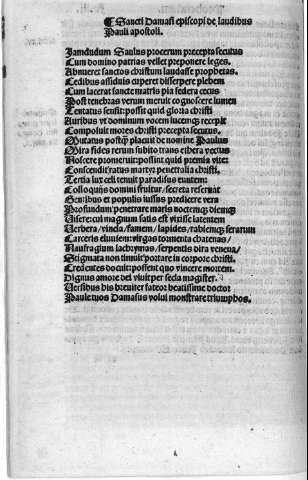 ¶ Sancti Damasi episcopi de laudibus
Pauli apostoli.
Iamdudum Saulus procerum precepta secutus
Cum domino patrias vellet preponere leges.
Abnueret sanctos christum laudasse prophetas.
Cedibus assiduis cuperet disperpere plebem
Cum lacerat sancte matris pia federa cecus
Post tenebras verum meruit cognoscere lumen
Tentatus sensit: possit quid gloria christi
Auribus vt dominum vocem lucemque recepit
Composuit mores christi precepta secutus.
Mutato postquam placuit de nomine Paulus
Mira fides rerum subito trans ethera vectus
Noscere promeruit: possint quid premia vite:
Conscendit raptus martyr penetralia christi.
Tertia lux celi tenuit paradisus euntem:
Colloquijs domini fruitur / secreta reseruat
Gentibus et populis iussus predicere vera
Profundum penetrare maris noctemque diemque
Visere: cui magnum satis est vixisse latentem
Verbera / vincla / famem / lapides / rabiemque ferarum
Carceris eluuiem: virgas tormenta cathenas /
Naufragium lachrymas / serpentis dira venena /
Stigmata non timuit portare in corpore christi.
Credentes docuit: possent quo vincere mortem.
Dignus amore dei viuit per secla magister.
Versibus his breuiter fateor beatissime doctor
Paule tuos Damasus volui monstrare triumphos.